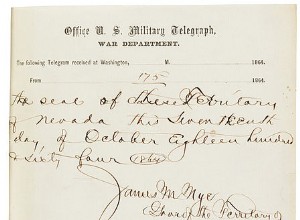 Office U. S. Military Telegraph,
WAR DEPARTMENT.
The following Telegram received at Washington, M. 1864.
From 175 1864.
the seal of these Territary
of Nevada this Seventeenth
day, of October Eighteen hundred
& sixty four 1864
James M Nye
Gov of the Territory of